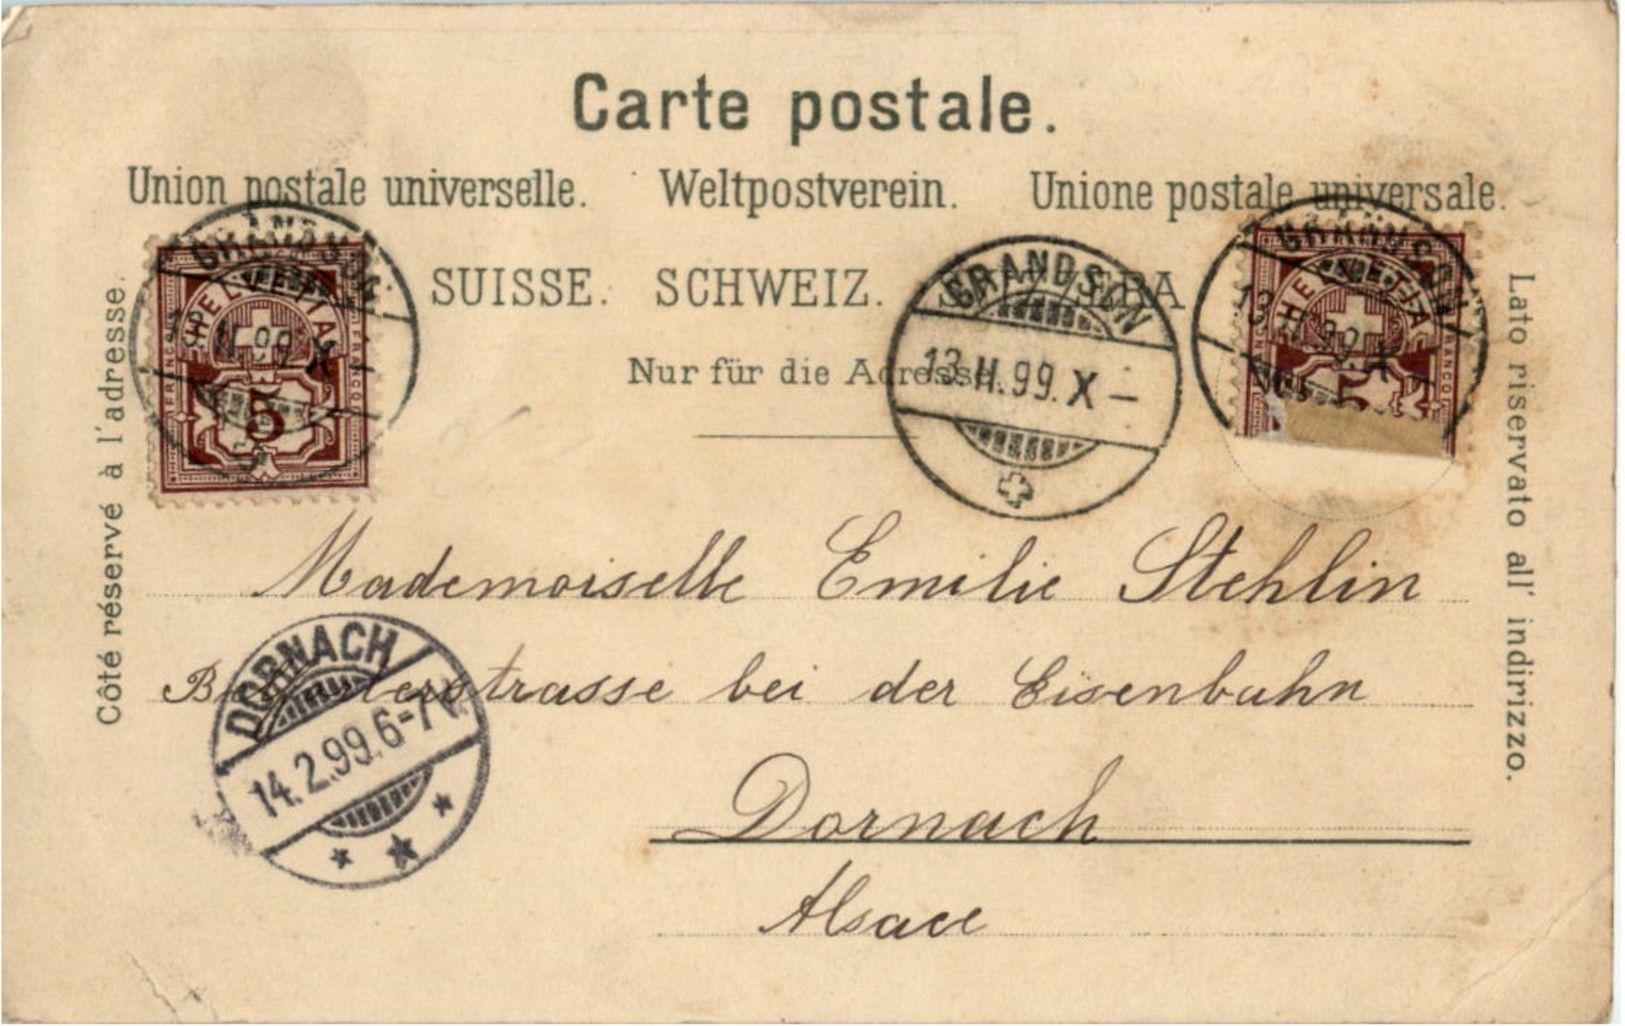 Carte postale.
Union postale universelle. Weltpostverein. Unione postale universale.
SUISSE. SCHWEIZ.
Nur für die Adresse.
Côté réservé à l'adresse.
Lato riservato all' indirizzo.
HELVETIA
FRANCO FRANCO
5
GRANDSON
13.II.99.X–
GRANDSON
13.II.99.X–
HELVETIA
FRANCO
5
GRANDSON
13.II.99.X
Mademoiselle Emilie Stehlin
bei der Eisenbahn
Dornach
Alsace
DORNACH
14.2.99.6-7V.